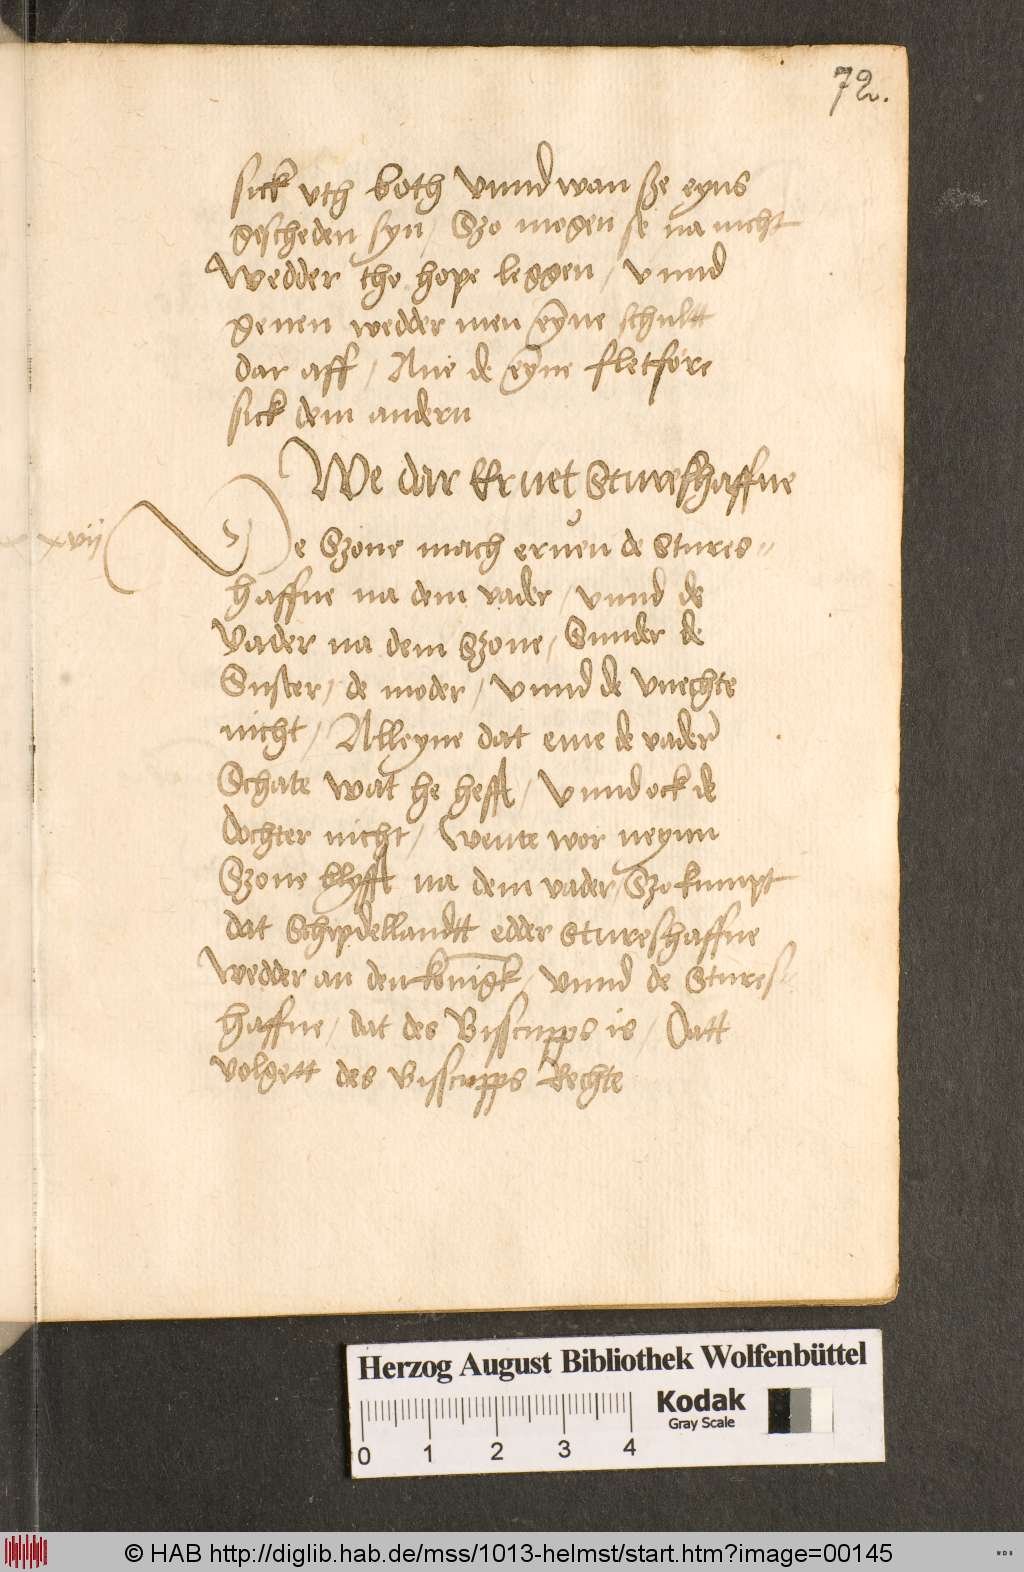 72.
sick vth both vnnd wan sze eyns
gescheden syn / Szo mogen se na nicht
Wedder tho hope leggen / vnnd
genen wedder men eyne schultt
dar aff / Ane de eyne fletfore
sick dem andern
We dar Eruet Stureshaffne
xvij
De Szone mach eruen de Stures-
haffne na dem vader / vnnd de
Vader na dem Szone / Sunder de
Suster / de moder / Vnnd de Vnechte
nicht / Alleyne dat eme de vader
Schate wat he hefft / Vnnd ock de
dochter nicht / Wente wor neynn
Szone blyfft na dem vader / Szo kumpt
dat Schypdellandtt edder Stureshaffne
Wedder an den konigk / Vnnd de Stures-
haffne / dat des Bisscupps is / Datt
volgett des Bisscupps Rechte
Herzog August Bibliothek Wolfenbüttel
Kodak
Gray Scale
0 1 2 3 4
© HAB http://diglib.hab.de/mss/1013-helmst/start.htm?image=00145